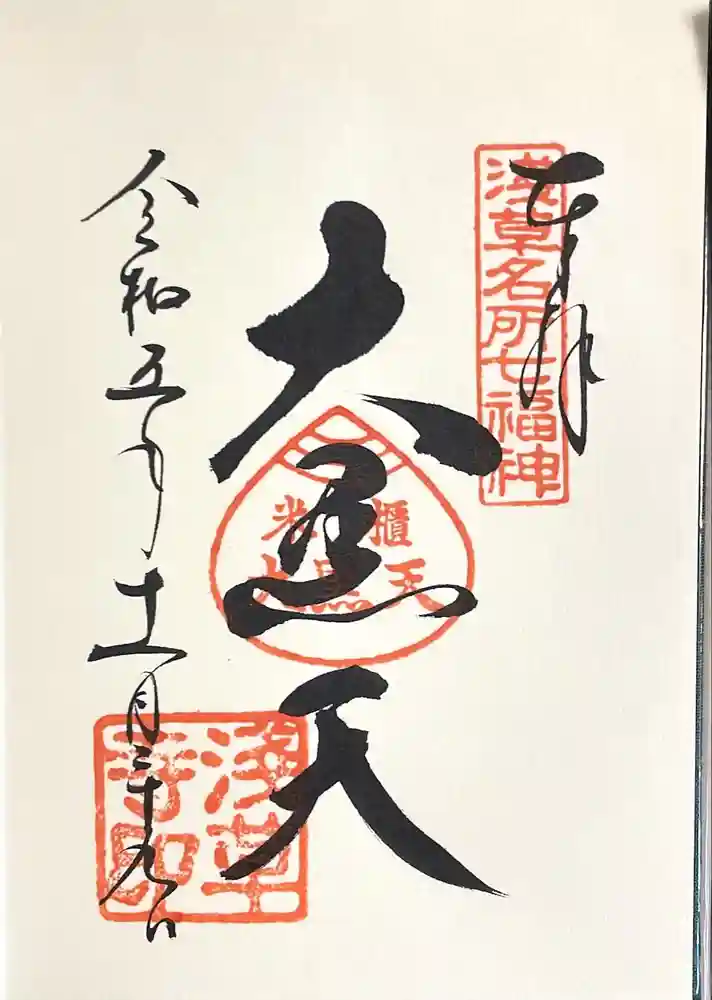 奉拝
淺草名所七福神
大黒天
米櫃
大黒天
令和五年十一月二十九日
浅草
寺印